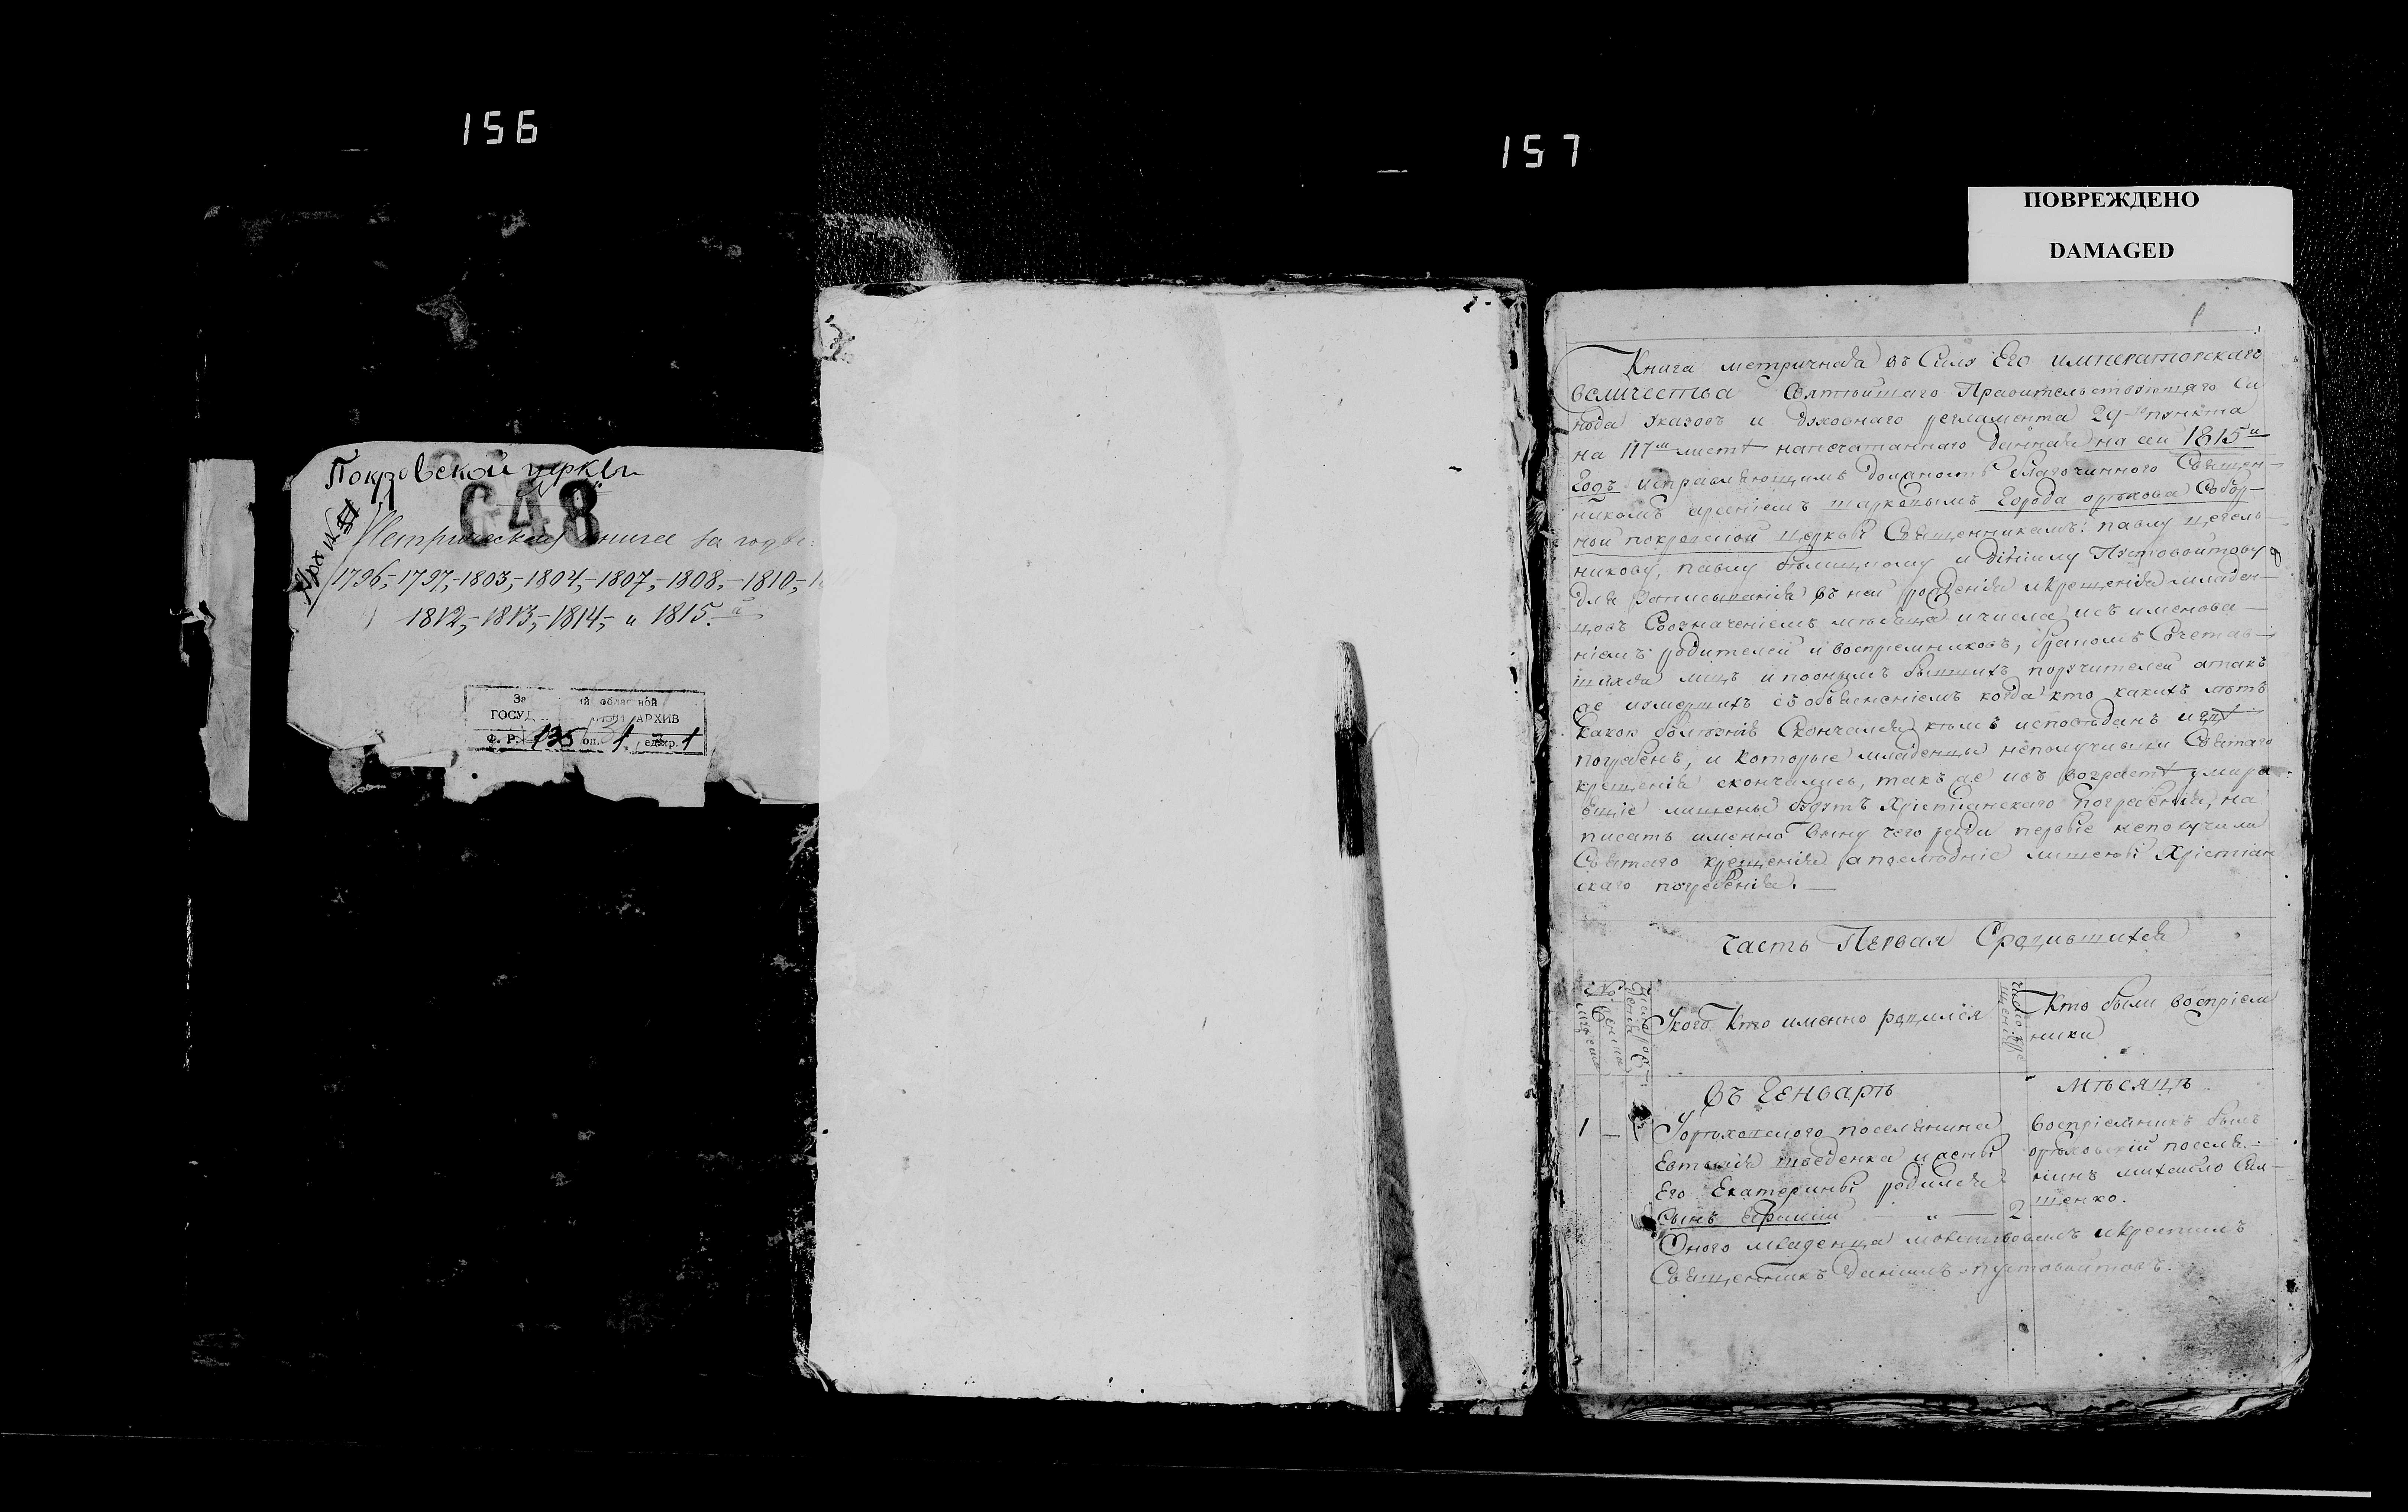 156
157
ПОВРЕЖДЕНО
DAMAGED
Покровской церкви
648
Метрическая книга за годы:
1796,-1797,-1803,-1804,-1807,-1808,-1810,-
1812,-1813,-1814,- и 1815.й
За ий областной
ГОСУД АРХИВ
Ф. Р. 135 оп. 31 ед.хр. 1
1
Книга метричная въ Силу Его императорскаго
величества Святейшаго Правительствующаго Си
нода Указовъ и духовнаго регламента 29 го пункта
на 117м листѣ напечатаннаго данная на сей 1815й
Годъ исправляющимъ должность благочиннаго Священ-
никомъ арсеніемъ Города орѣхова Собор-
ной покровской церкви Священникамъ: павлу
никову, павлу и Пустовойтову
для записыванія въ ней рожденія и крещенія младен-
цовъ Созначеніемъ мѣсяца и числа ихъ именова-
ніемъ родителей и воспріемниковъ, бракомъ Сочетав-
шихся лицъ и поонымъ бывшихъ поручителей атакъ
же умершихъ собъясненіемъ когда кто какихъ лѣтъ
какою болѣзнію Скончался кѣмъ исповѣданъ и гдѣ
погребенъ, и которые младенцы неполучивши Святаго
крещенія скончались, такъ же изъ возрастѣ умира
ющіе лишены будутъ Хрістіанскаго погребенія, на
писать именно вину чего ради первіе неполучили
Святаго крещенія апослѣдніе лишены Хрістіан
скаго погребенія.
Часть Первая Срадившихся
№
Укого Кто именно радился
Кто были воспріем
ники
Въ Генварѣ мѣсяцѣ
1
Уорѣховского поселянина
Евтихія шведенка ижены
Его Екатерины родился
Сынъ Ефимій 2
воспріемникъ былъ
орѣховскій поселя-
нинъ михайло Сил-
щенко.
Оного младенца молитвовалъ икрестилъ
Священникъ Даніилъ пустовойтовъ.